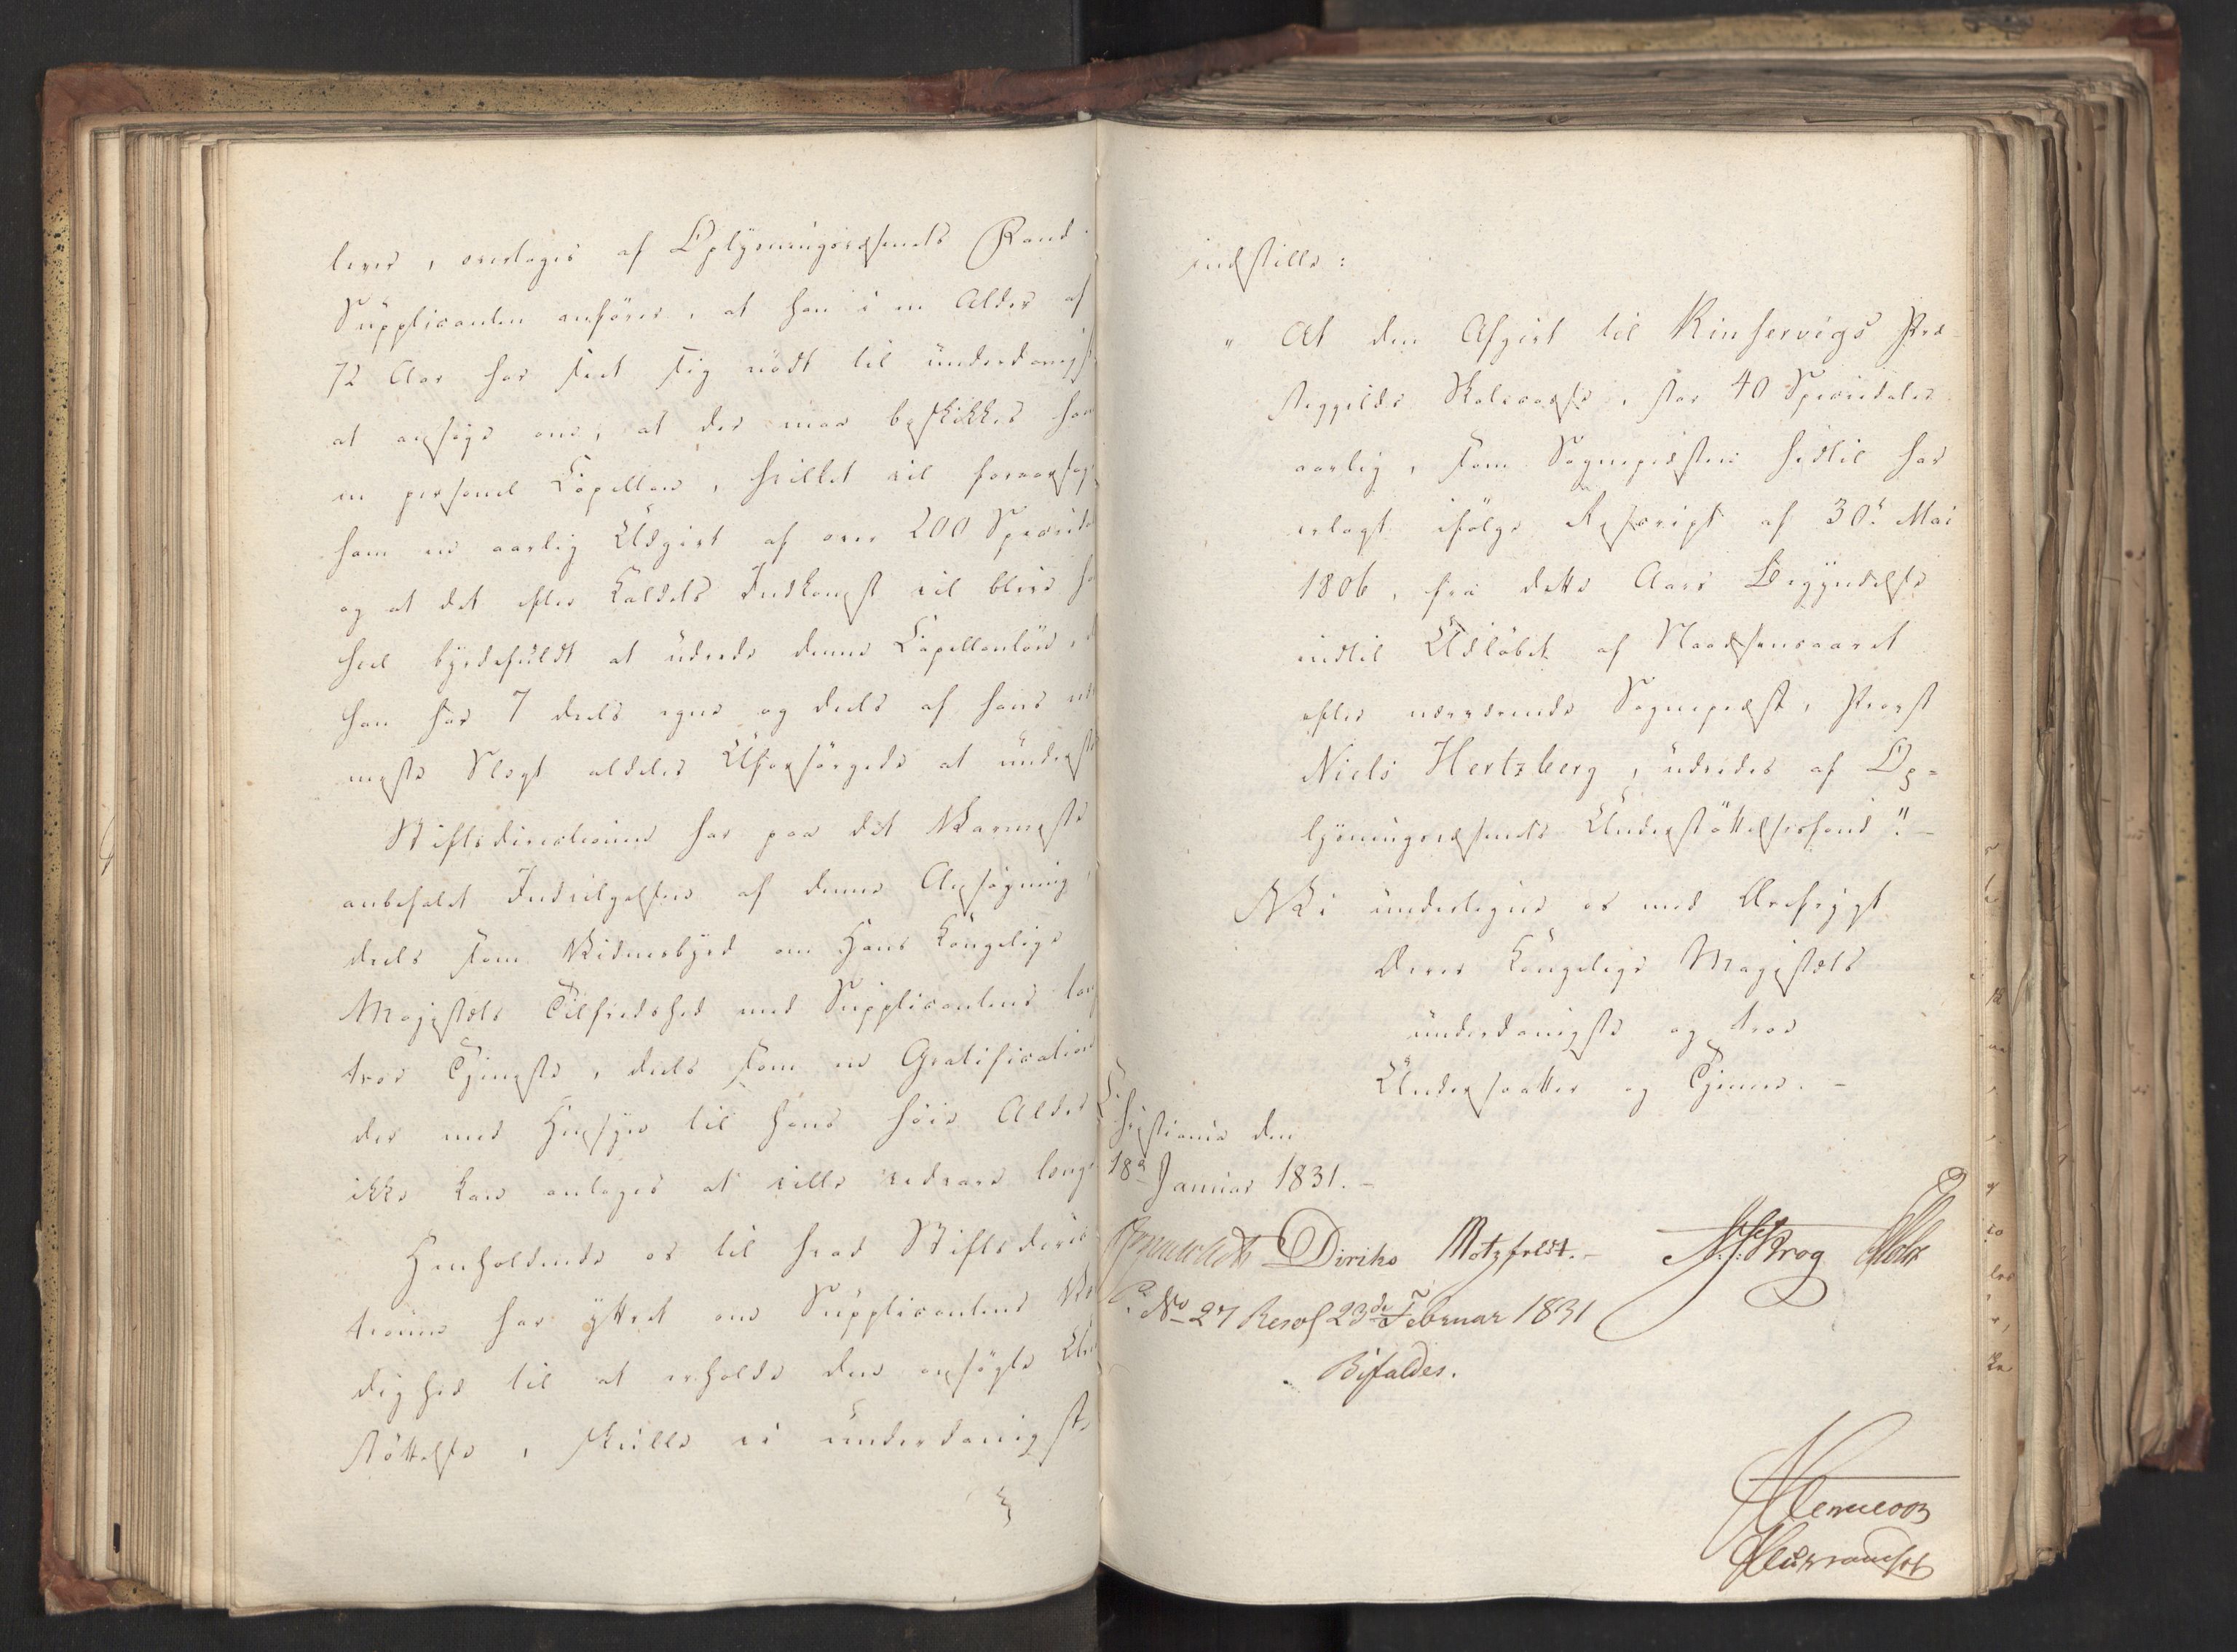 lever, overtages af Oplysningsvæsenets Fond.
Supplicanten anfører, at han i en Alder af
72 Aar har seet sig nødt til underdanigst
at ansøge om, at der maa beskikkes ham
en personel Capellan, hvilket vil foraarsage
ham en aarlig Udgivt af over 200 Speciedal
og at det efter Kaldets Indkomst vil blive h
heel byrdefuldt at udrede denne Capellanløn,
han har 7 deels egne og deels af hans
meste Slægt aldeles Uforsørgede at underst
Stiftsdirectionen har paa det Varmeste
anbefalet Indvilgelsen af denne Ansøgning,
deels som Vidnesbyrd om Hans Kongelige
Majestæts Tilfredshed med Supplicantens lang
troe Tjeneste, deels som en Gratification
der med Hensyn til hans høie Alder
ikke kan antages at ville vedvare længe
Henholdende os til hvad Stiftsdirec-
tionen har yttret om Supplicantens Vær
dighed til at erholde den ansøgte Un
støttelse, skulle vi underdanigst
indstille:
" At den Afgivt til Kinservigs Præ-
stegjelds Skolecasse, stor 40 Speciedaler
aarlig, som Sognepræsten hidtil har
erlagt ifølge Rescript af 30te Mai
1806, fra dette Aars Begyndelse
indtil Udløbet af Naadsensaaret
efter nærværende Sognepræst, Provst
Niels Hertzberg, udredes af Op=
lysningsvæsenets Understøttelsesfond". -
Vi undertegne os med Ærefrygt
Deres Kongelige Majestæts
underdanigste og troe
Undersaatter og Tjenere. -
Christiania den
18de Januar 1831. -
Diriks Motzfeldt. - Krog
No 27 Resol 23de Februar 1831
Bifaldes.